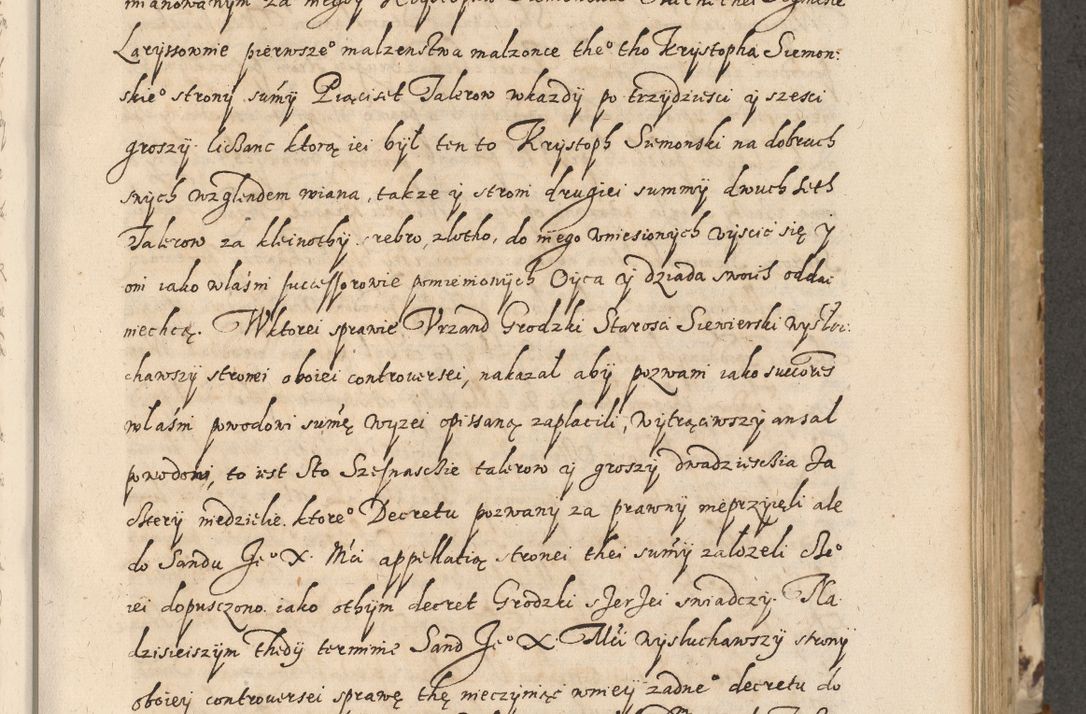 Laryssownie pierwsze° malzenstwa malzonce the° tho Krystopha Siemon:
skie° strony sumy Piąciset Talerow wkazdy po trzydziesci y szesci
groszy licżanc ktorą iei był ten to Krystoph Siemonski na dobrach
swych wzglendem wiana, takze y stroni drugiei summy dwuch seth
Talerow za kleinothy srebro, zlotho, do niego wniesionych wyscic się y
oni iako własni successorowie pomienionych Oyca y dziada swoich oddac
niechcą. Wktorei sprawie Vrzand Grodzki Starosci Siewierski wysłu:
chawszy stronei oboiei controversei, nakazał aby pozwani iako succores
własni powodowi sumę wyzei opissaną zaplacili, wytrąciwszy
powodowi, to iest Sto Szesnasckie talerow y groszy dwadziesckia
niedzielie. ktore° Decretu pozwany za prawny nieprzyięli ale
do Sandu Je° X. Mci appellatią stronei thei sumy zalozeli
iei dopusczono. iako othym decret Grodzki sJerJei swiadczy. Na
dzisieiszym thedy terminie Sand Je° X. Mci wysluchawszy strony
oboiey controversei sprawę thę nieczyniąc wniey zadne° decretu do